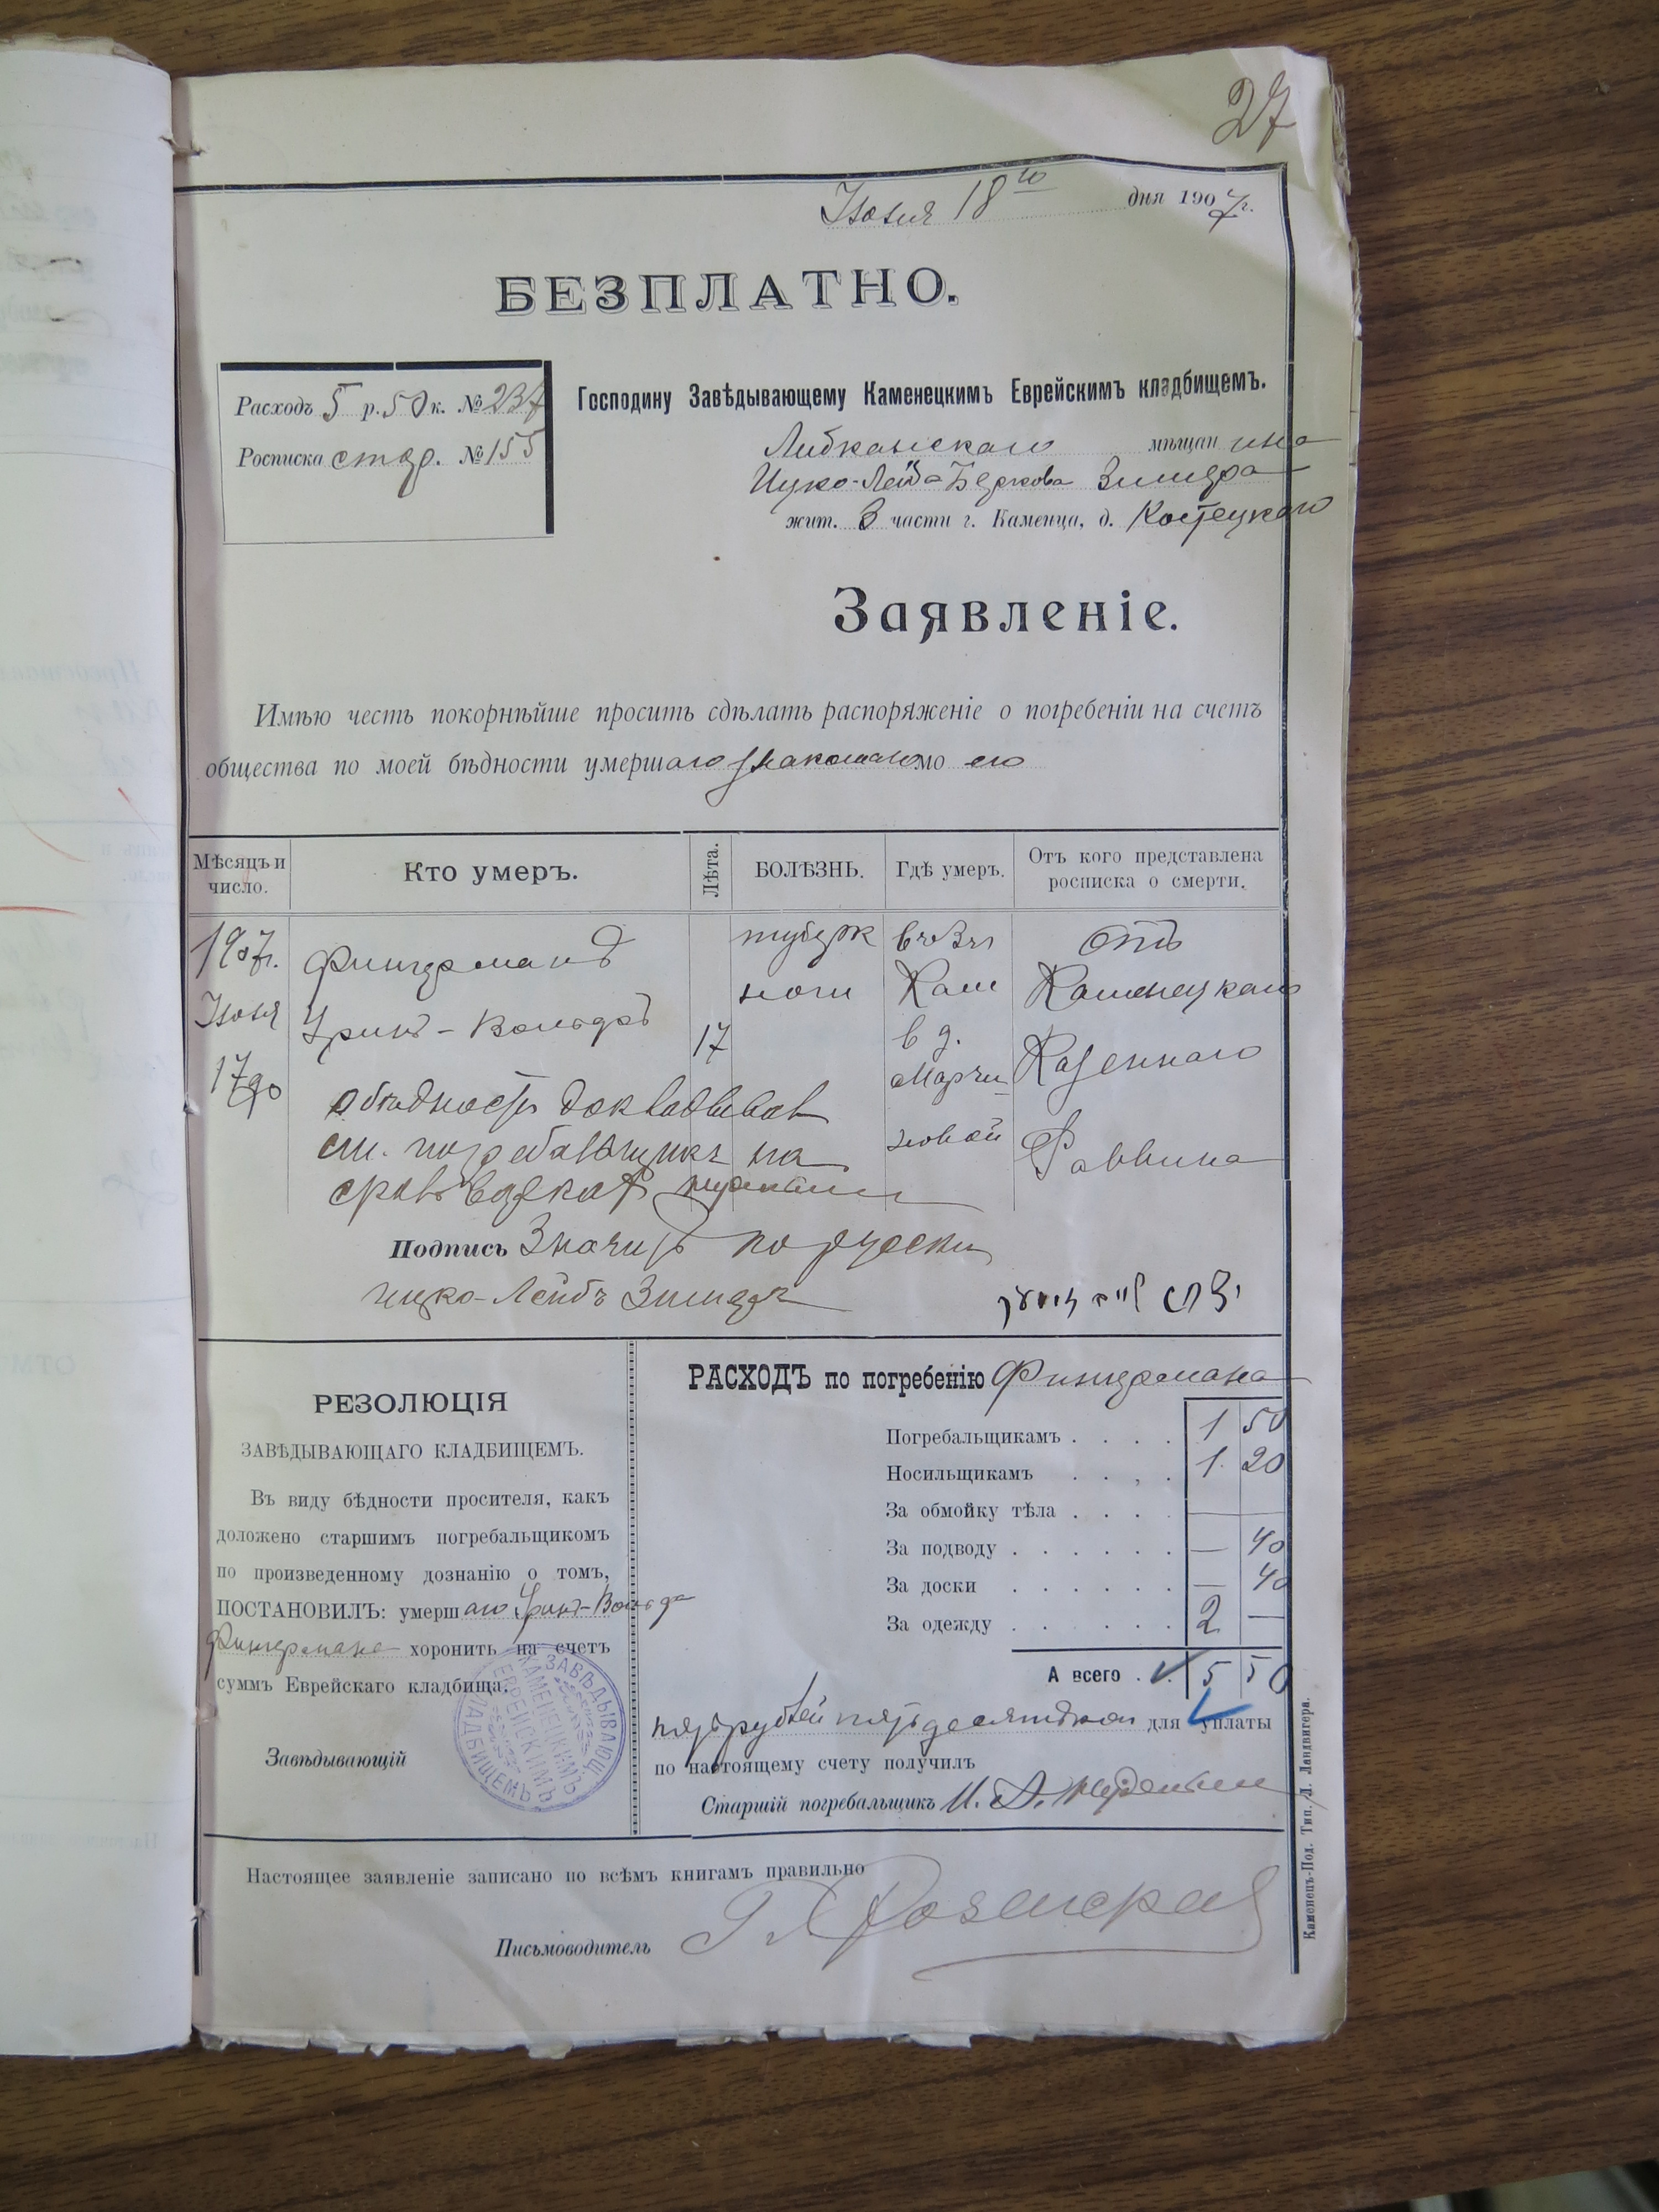 27
Іюля 18го дня 1907 г.
БЕЗПЛАТНО.
Расходъ 5 р. 50 к. № 237
Росписка стар. № 155
Господину Завѣдывающему Каменецкимъ Еврейскимъ кладбищемъ.
Либканскаго мѣщанина
Ицко-Лейба Беркова Зингера
жит. 3 части г. Каменца, д. Костецкаго
Заявленіе.
Имѣю честь покорнѣйше просить сдѣлать распоряженіе о погребеніи на счетъ
общества по моей бѣдности умершаго знакомаго мо его
Мѣсяцъ и число.
Кто умеръ.
Лѣта.
БОЛѢЗНЬ.
Гдѣ умеръ.
Отъ кого представлена росписка о смерти.
1907 г. Фингерманъ туберк въ 3 ч Отъ
Іюля ноги Кам Каменецкаго
17 в д. Казеннаго
17го
Раввина
о бѣдности докладывав
ст. погребальщикъ на
Подпись Значитъ по русски
Ицко-Лейбъ Зингеръ
РЕЗОЛЮЦІЯ
ЗАВѢДЫВАЮЩАГО КЛАДБИЩЕМЪ.
Въ виду бѣдности просителя, какъ
доложено старшимъ погребальщикомъ
по произведенному дознанію о томъ,
ПОСТАНОВИЛЪ: умершаго
Фингермана хоронить на счетъ
суммъ Еврейскаго кладбища.
Завѣдывающій
ЗАВѢДЫВАЮЩ. КАМЕНЕЦКИМЪ ЕВРЕЙСКИМЪ КЛАДБИЩЕМЪ
РАСХОДЪ по погребенію Фингермана
Погребальщикамъ . . . . 1 50
Носильщикамъ . . . . 1. 20
За обмойку тѣла . . . . —
За подводу . . . . . . — 40
За доски . . . . . . — 40
За одежду . . . . . . 2 —
А всего . 5 50
пять рублей пятьдесятъ коп для уплаты
по настоящему счету получилъ
Старшій погребальщикъ
Настоящее заявленіе записано по всѣмъ книгамъ правильно
Письмоводитель
Каменецъ-Под. Тип. Л.Ландвигера.